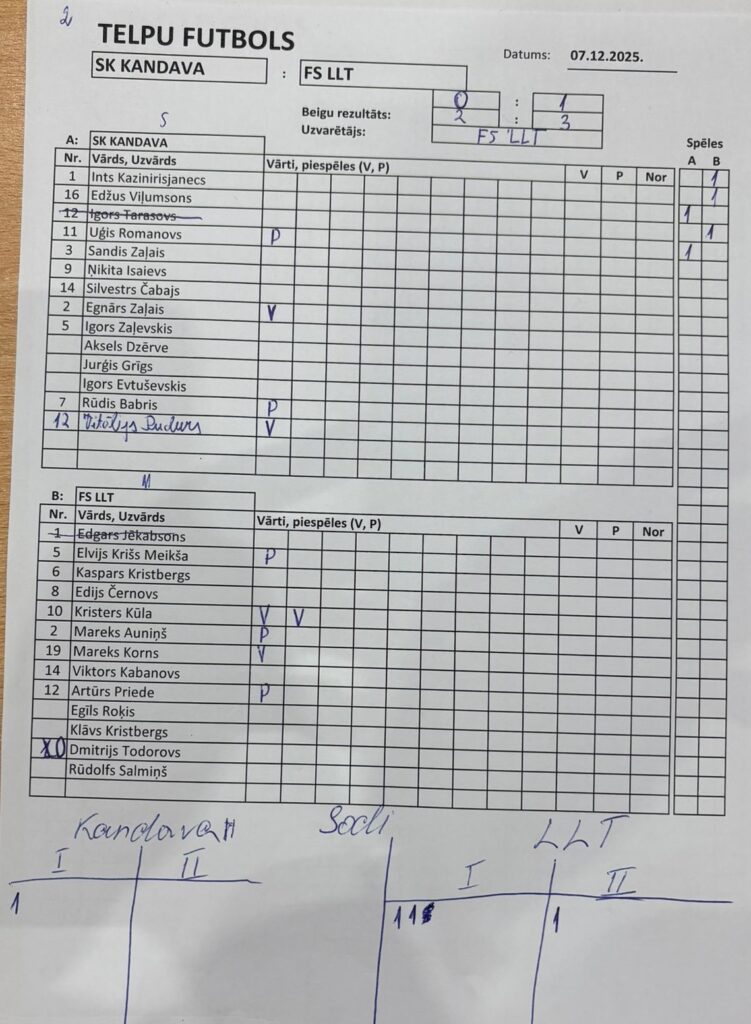 2
TELPU FUTBOLS
Datums: 07.12.2025.
SK KANDAVA : FS LLT
Beigu rezultāts: 0 : 1
2 : 3
Uzvarētājs: FS LLT
S
Spēles
A: SK KANDAVA
A B
Nr. Vārds, Uzvārds Vārti, piespēles (V, P) V P Nor
1 Ints Kazinirisjanecs 1
16 Edžus Viļumsons 1
12 Igors Tarasovs 1
11 Uģis Romanovs P 1
3 Sandis Zaļais 1
9 Ņikita Isaievs
14 Silvestrs Čabajs
2 Egnārs Zaļais V
5 Igors Zaļevskis
Aksels Dzērve
Jurģis Grīgs
Igors Evtuševskis
7 Rūdis Babris P
12 Vitālijs V
M
B: FS LLT
Nr. Vārds, Uzvārds Vārti, piespēles (V, P) V P Nor
1 Edgars Jēkabsons
5 Elvijs Krišs Meikša P
6 Kaspars Kristbergs
8 Edijs Černovs
10 Kristers Kūla V V
2 Mareks Auniņš P
19 Mareks Korns V
14 Viktors Kabanovs
12 Artūrs Priede P
Egīls Roķis
Klāvs Kristbergs
Dmitrijs Todorovs
Rūdolfs Salmiņš
Kandava Sodi LLT
I II I II
1 1 1 1